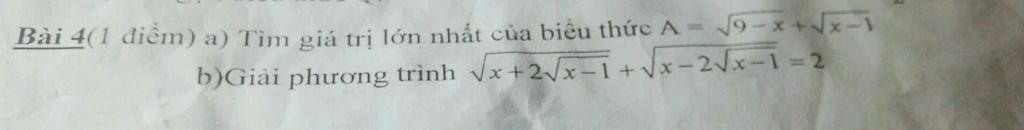 Bài 4(1 điểm) a) Tìm giá trị lớn nhất của biểu thức A = √(9 − x) + √(x − 1)
b)Giải phương trình √(x + 2√(x − 1)) + √(x − 2√(x − 1)) = 2